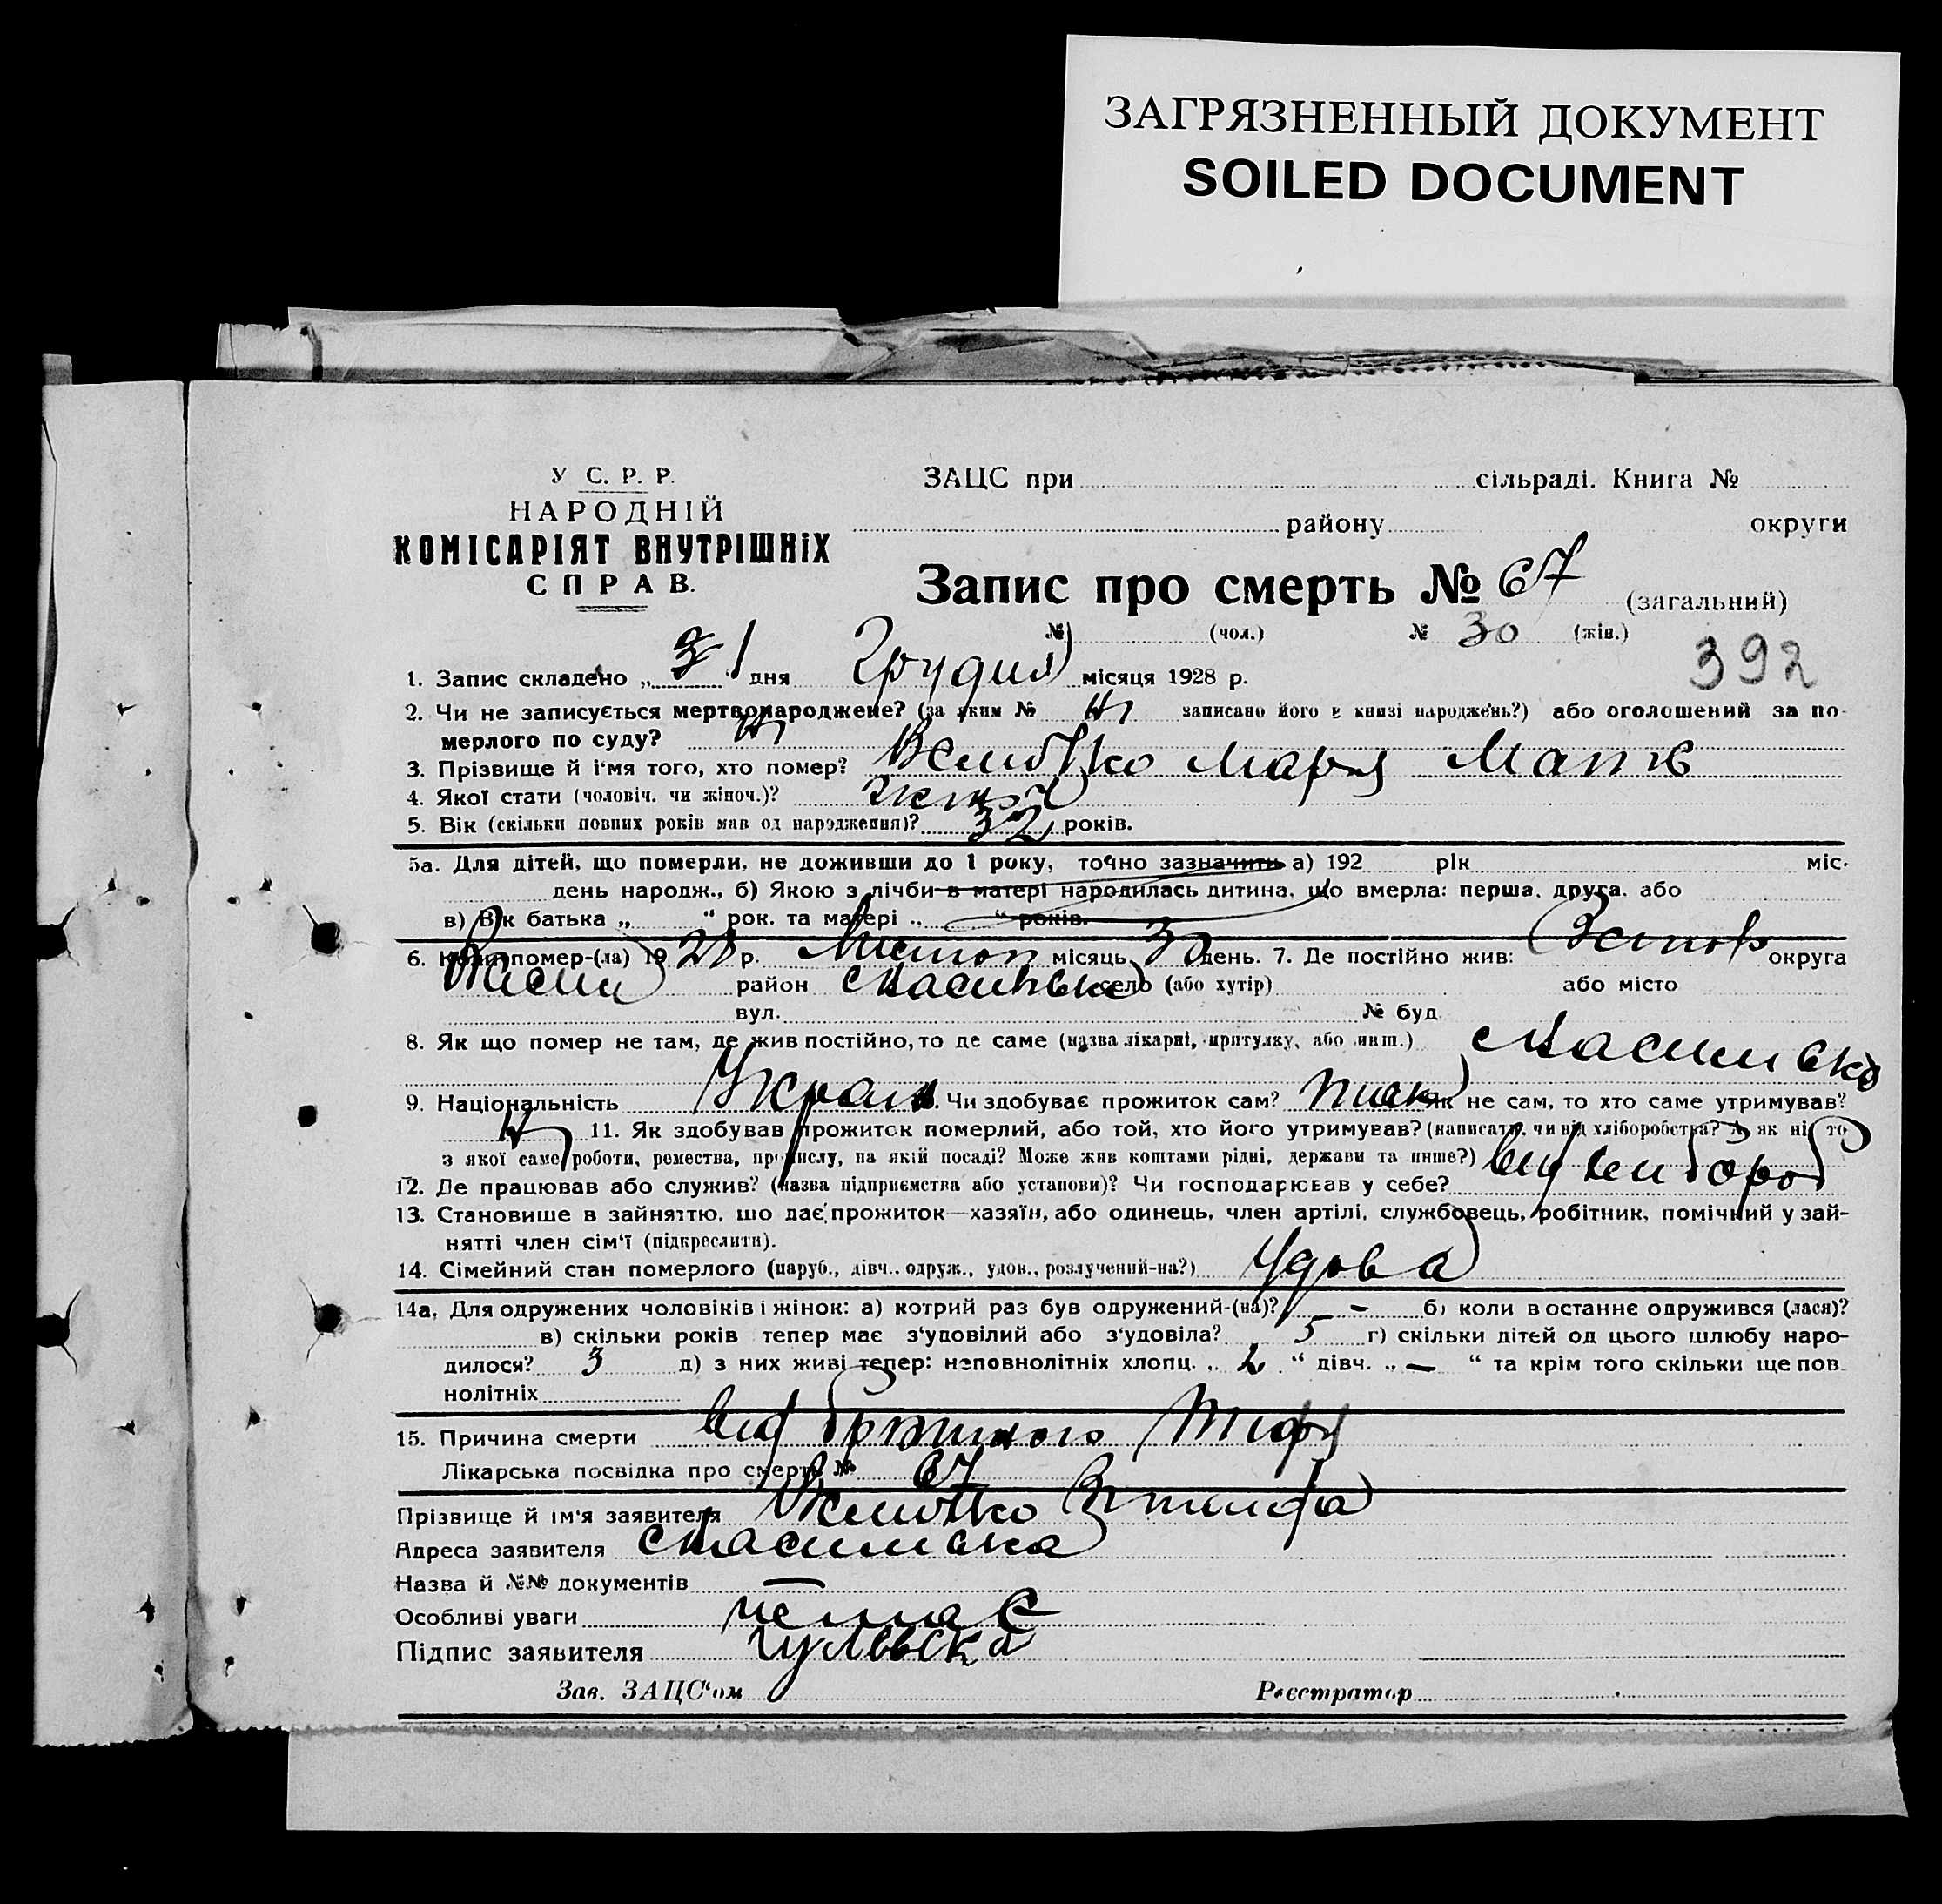 ЗАГРЯЗНЕННЫЙ ДОКУМЕНТ
SOILED DOCUMENT
У С. Р. Р.
НАРОДНІЙ
КОМІСАРІЯТ ВНУТРІШНІХ
СПРАВ.
ЗАЦС при сільраді. Книга №
району округи
Запис про смерть № 67 (загальний)
№ (чол.) № 30 (жін.)
392
1. Запис складено „ 31 " дня Грудня місяця 1928 р.
2. Чи не записується мертвонароджене? (за яким № Ні записано його в книзі народжень?) або оголошений за по-
мерлого по суду? Ні
3. Прізвище й і'мя того, хто помер? Марія
4. Якої стати (чоловіч. чи жіноч.)? жіноч
5. Вік (скільки повних років мав од народження)? 32 років.
5а. Для дітей, що померли, не доживши до 1 року, точно зазначити а) 192 рік міс.
день народж., б) Якою з лічби в матері народилась дитина, що вмерла: перша, друга, або
в) Вік батька „ “ рок. та матері „ “ років.
6. Коли помер-(ла) 1928 р. місяць 30 день. 7. Де постійно жив: округа
район село (або хутір) або місто
вул. № буд.
8. Як що помер не там, де жив постійно, то де саме (назва лікарні, притулку, або инш.)
9. Національність Чи здобуває прожиток сам? Так Як не сам, то хто саме утримував?
Ні 11. Як здобував прожиток померлий, або той, хто його утримував? (написати, чи від хліборобства? А як ні, то
з якої саме роботи, ремества, промислу, на якій посаді? Може жив коштами рідні, держави та инше?) від хлибороб
12. Де працював або служив? (назва підприємства або установи)? Чи господарював у себе?
13. Становище в зайняттю, що дає прожиток—хазяїн, або одинець, член артілі, службовець, робітник, помічний у зай-
нятті член сім'ї (підкреслити).
14. Сімейний стан померлого (паруб., дівч., одруж., удов., розлучений-на?) Удова
14а. Для одружених чоловіків і жінок: а) котрий раз був одружений-(на)? – б) коли в останнє одружився (лася)?
в) скільки років тепер має з'удовілий або з'удовіла? 5 г) скільки дітей од цього шлюбу наро-
дилося? 3 д) з них живі тепер: неповнолітніх хлопц. „ 2 “ дівч. „ — “ та крім того скільки ще пов-
нолітніх
15. Причина смерти від Тифа
Лікарська посвідка про смерть № 67
Прізвище й ім'я заявителя
Адреса заявителя
Назва й №№ документів —
Особливі уваги немає
Підпис заявителя
Зав. ЗАЦС'ом Реєстратор